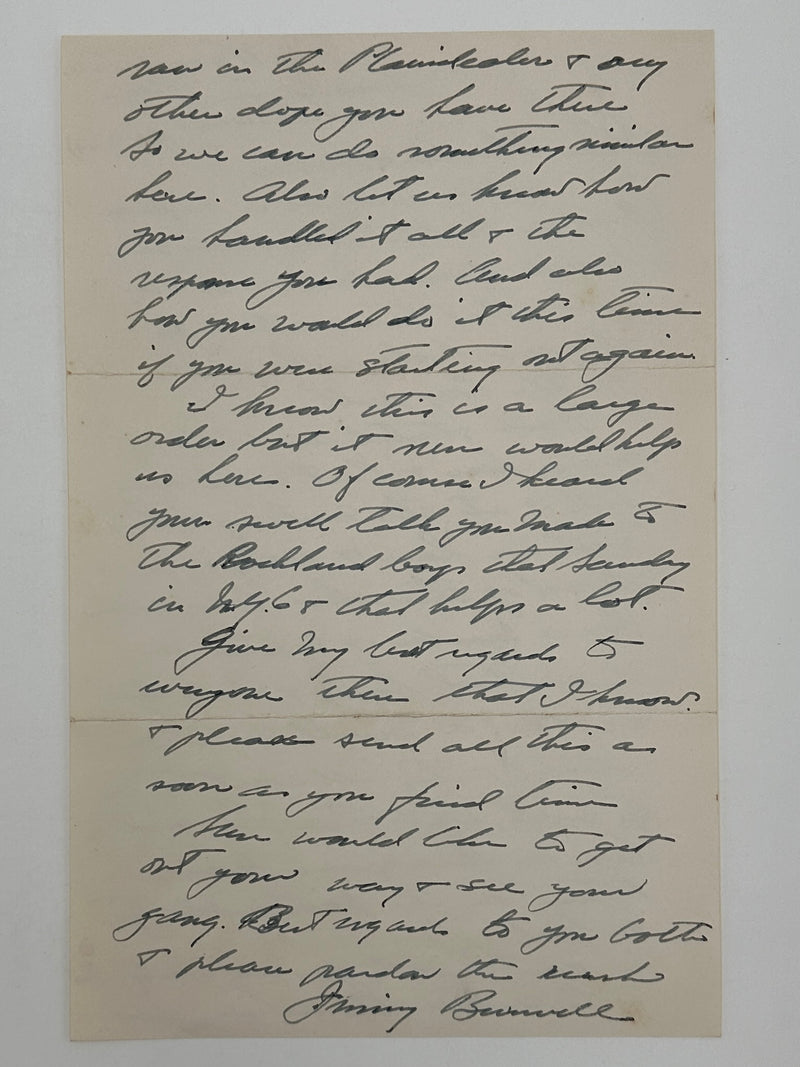 ran in the Plaindealer & any
other dope you have there
So we can do something similar
here. Also let us know how
you handled it all & the
response you had. And also
how you would do it this time
if you were starting out again.
I know this is a large
order but it sure would help
us here. Of course I heard
your swell talk you made to
the Rockland boys that Sunday
in N.Y.C & that helps a lot.
Give my best regards to
everyone there that I know.
& please send all this as
soon as you find time
Sure would like to get
out your way & see your
gang. Best regards to you both
& please pardon the rush
Jimmy Burwell